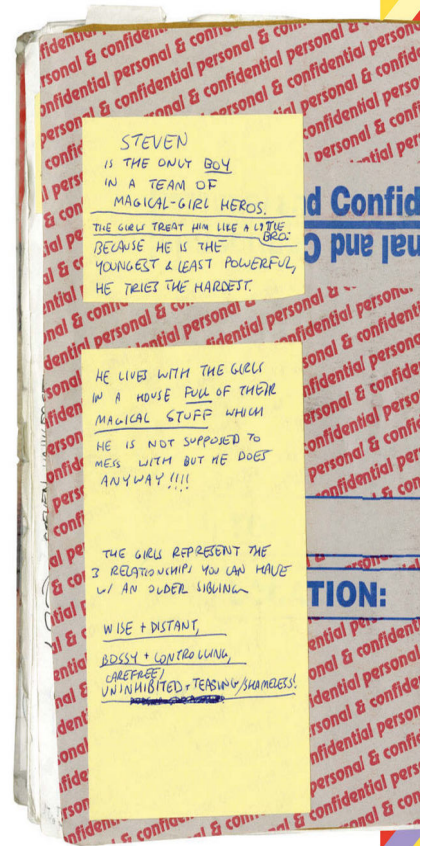 STEVEN
IS THE ONLY BOY
IN A TEAM OF
MAGICAL-GIRL HEROS.
THE GIRLS TREAT HIM LIKE A LITTLE
BRO.
BECAUSE HE IS THE
YOUNGEST & LEAST POWERFUL,
HE TRIES THE HARDEST.
HE LIVES WITH THE GIRLS
IN A HOUSE FULL OF THEIR
MAGICAL STUFF WHICH
HE IS NOT SUPPOSED TO
MESS WITH BUT HE DOES
ANYWAY !!!!
THE GIRLS REPRESENT THE
3 RELATIONSHIPS YOU CAN HAVE
W/ AN OLDER SIBLING
WISE + DISTANT,
BOSSY + CONTROLLING,
CAREFREE/
UNINHIBITED + TEASING/SHAMELESS!
d Confid
TION:
personal & confidential personal & confidential